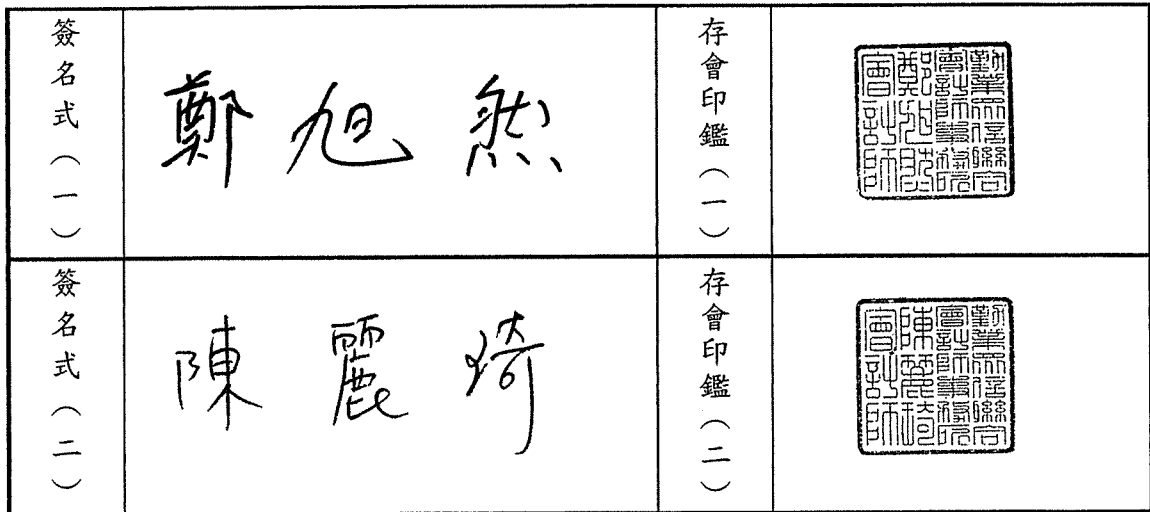 簽名式（一）
鄭旭然
存會印鑑（一）
勤業眾信聯合
會計師事務所
鄭旭然
會計師
簽名式（二）
陳麗琦
存會印鑑（二）
勤業眾信聯合
會計師事務所
陳麗琦
會計師